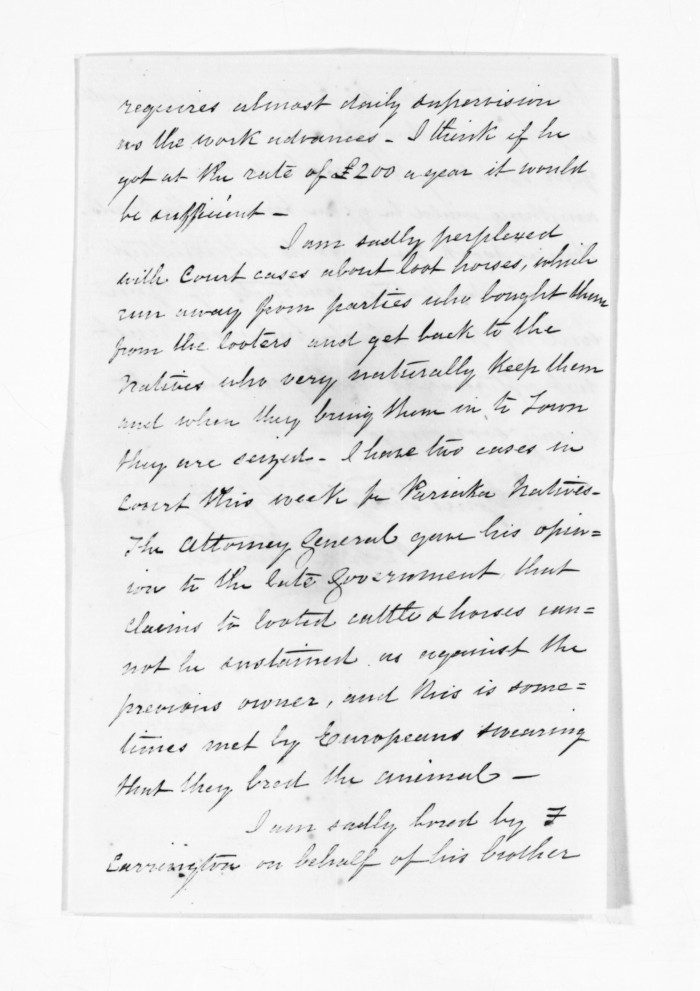 requires almost daily supervision
as the work advances - I think if he
got at the rate of £200 a year it would
be sufficient -
I am sadly perplexed
with Court cases about loot horses, which
run away from parties who bought them
from the looters and get back to the
Natives who very naturally keep them
and when they bring them in to Town
they are seized - I have two cases in
Court this week for Pariaka Natives -
The Attorney General gave his opin=
ion to the late Government that
claims to looted cattle & horses can=
not be sustained as against the
previous owner, and this is some=
times met by Europeans swearing
that they bred the animal -
I am sadly bored by F
Carrington on behalf of his brother